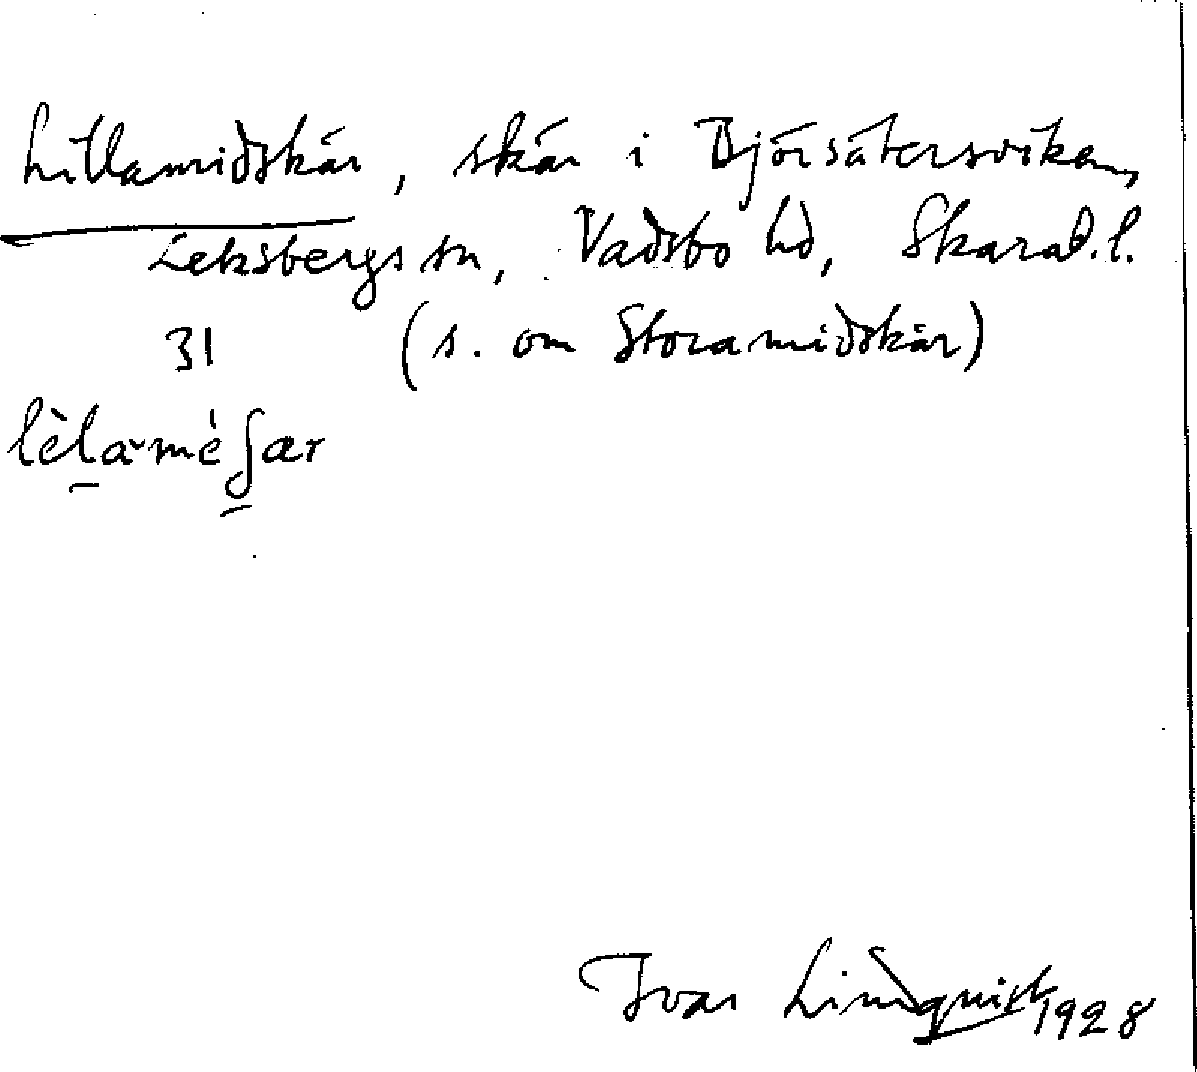 Lillamidskär, skär i Björsätersviken,
Leksbergs sn, Vadsbo hd, Skarab.l.
31 (s. om Storamidskär)
lèlamèʃær
Ivar Lindquist 1928